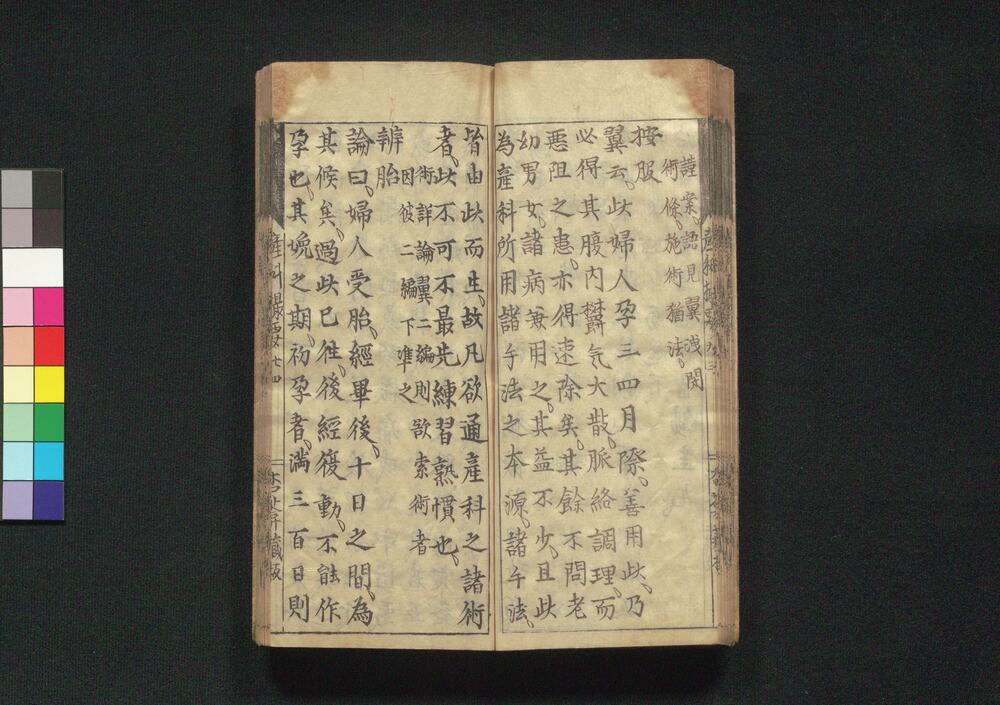 按服
謹案語見翼淺閔
術條施術猶法
翼云此婦人孕三四月際善用此乃
必得其腹內鬱氣大散脈絡調理而
惡阻之患亦得速除矣其餘不問老
幼男女諸病兼用之其益不少且此
為產科所用諸手法之本源諸手法
皆由此而生故凡欲通產科之諸術
者此不可不最先練習熟慣也
術詳論翼二編則欲索術者
因彼二編下準之
辨胎
論曰婦人受胎經畢後十日之間為
其候矣過此已往後經復動不能作
孕也其娩之期初孕者滿三百日則